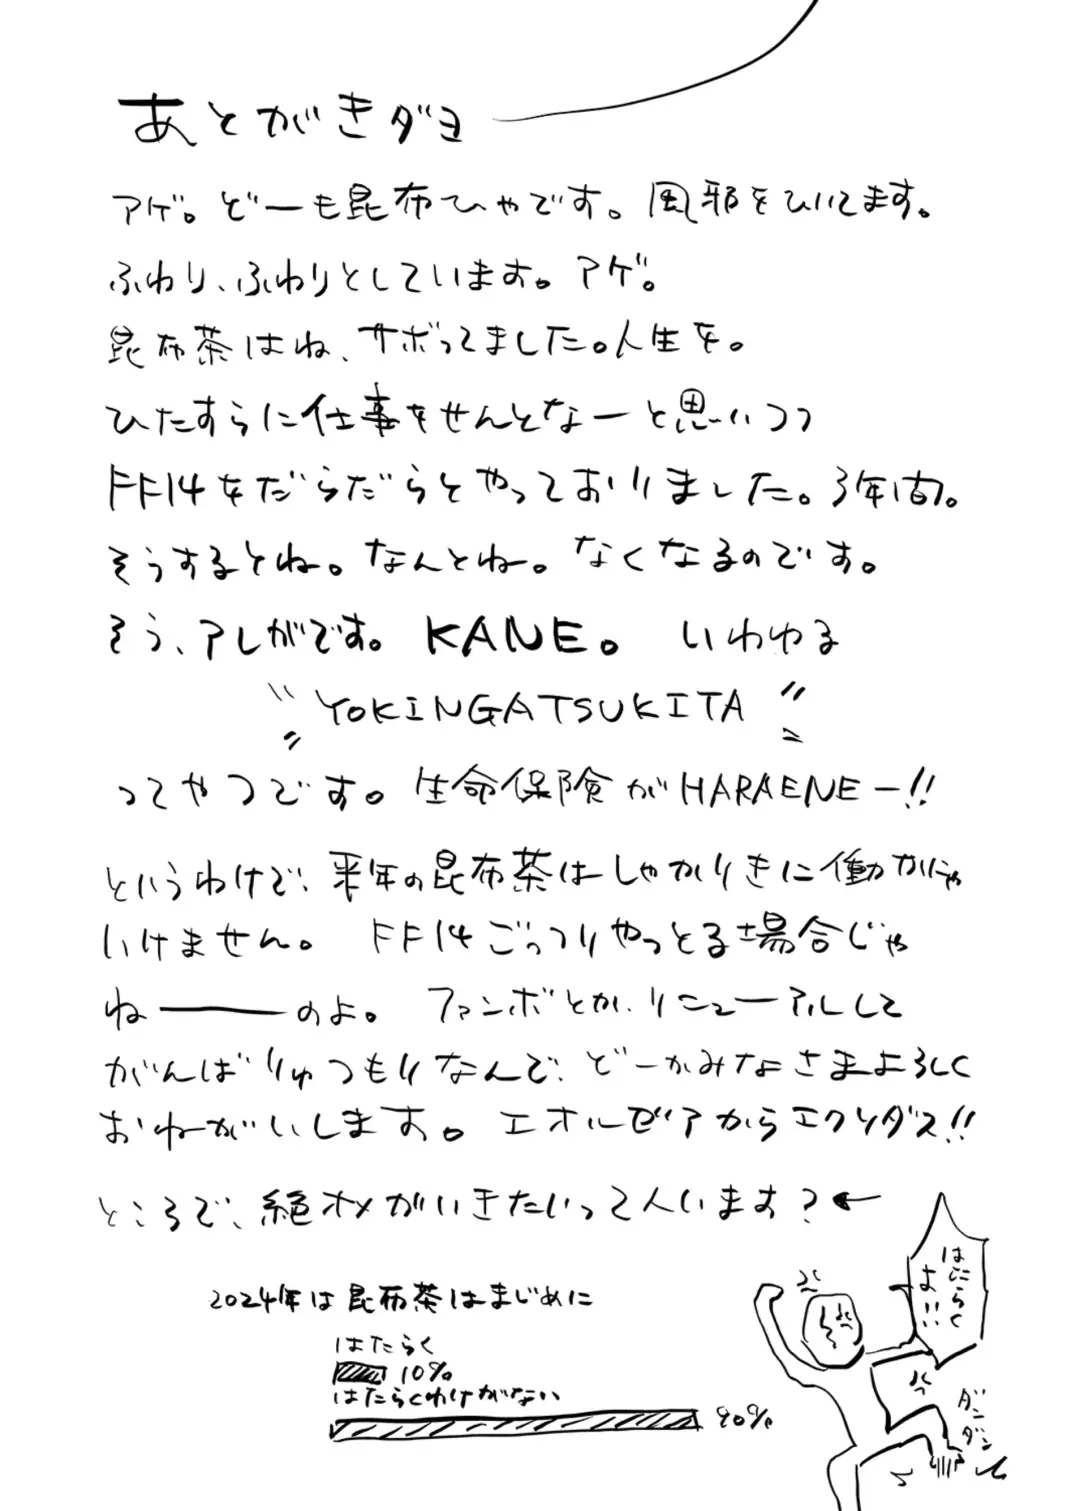 あとがきダヨ
アゲ。どーも昆布ひゃです。風邪をひいてます。
ふわり、ふわりとしています。アゲ。
昆布茶はね、サボってました。人生を。
ひたすらに仕事をせんとなーと思いつつ
FF14をだらだらとやっておりました。3年間。
そうするとね。なんとね。なくなるのです。
そう、アレがです。KANE。いわゆる
"YOKINGATSUKITA"
ってやつです。生命保険がHARAENEー!!
というわけで、来年の昆布茶はしゃかりきに働かにゃ
いけません。FF14ごっつりやっとる場合じゃ
ねーーーのよ。ファンボとか、リニューアルして
がんばりゅつもりなんで、どーかみなさまよろしく
おねがいします。エオルゼアからエクソダス!!
ところで、絶オメがいきたいって人います?←
はたらくよ!!
2024年は昆布茶はまじめに
はたらく
10%
はたらくわけがない
90%
ダンダン